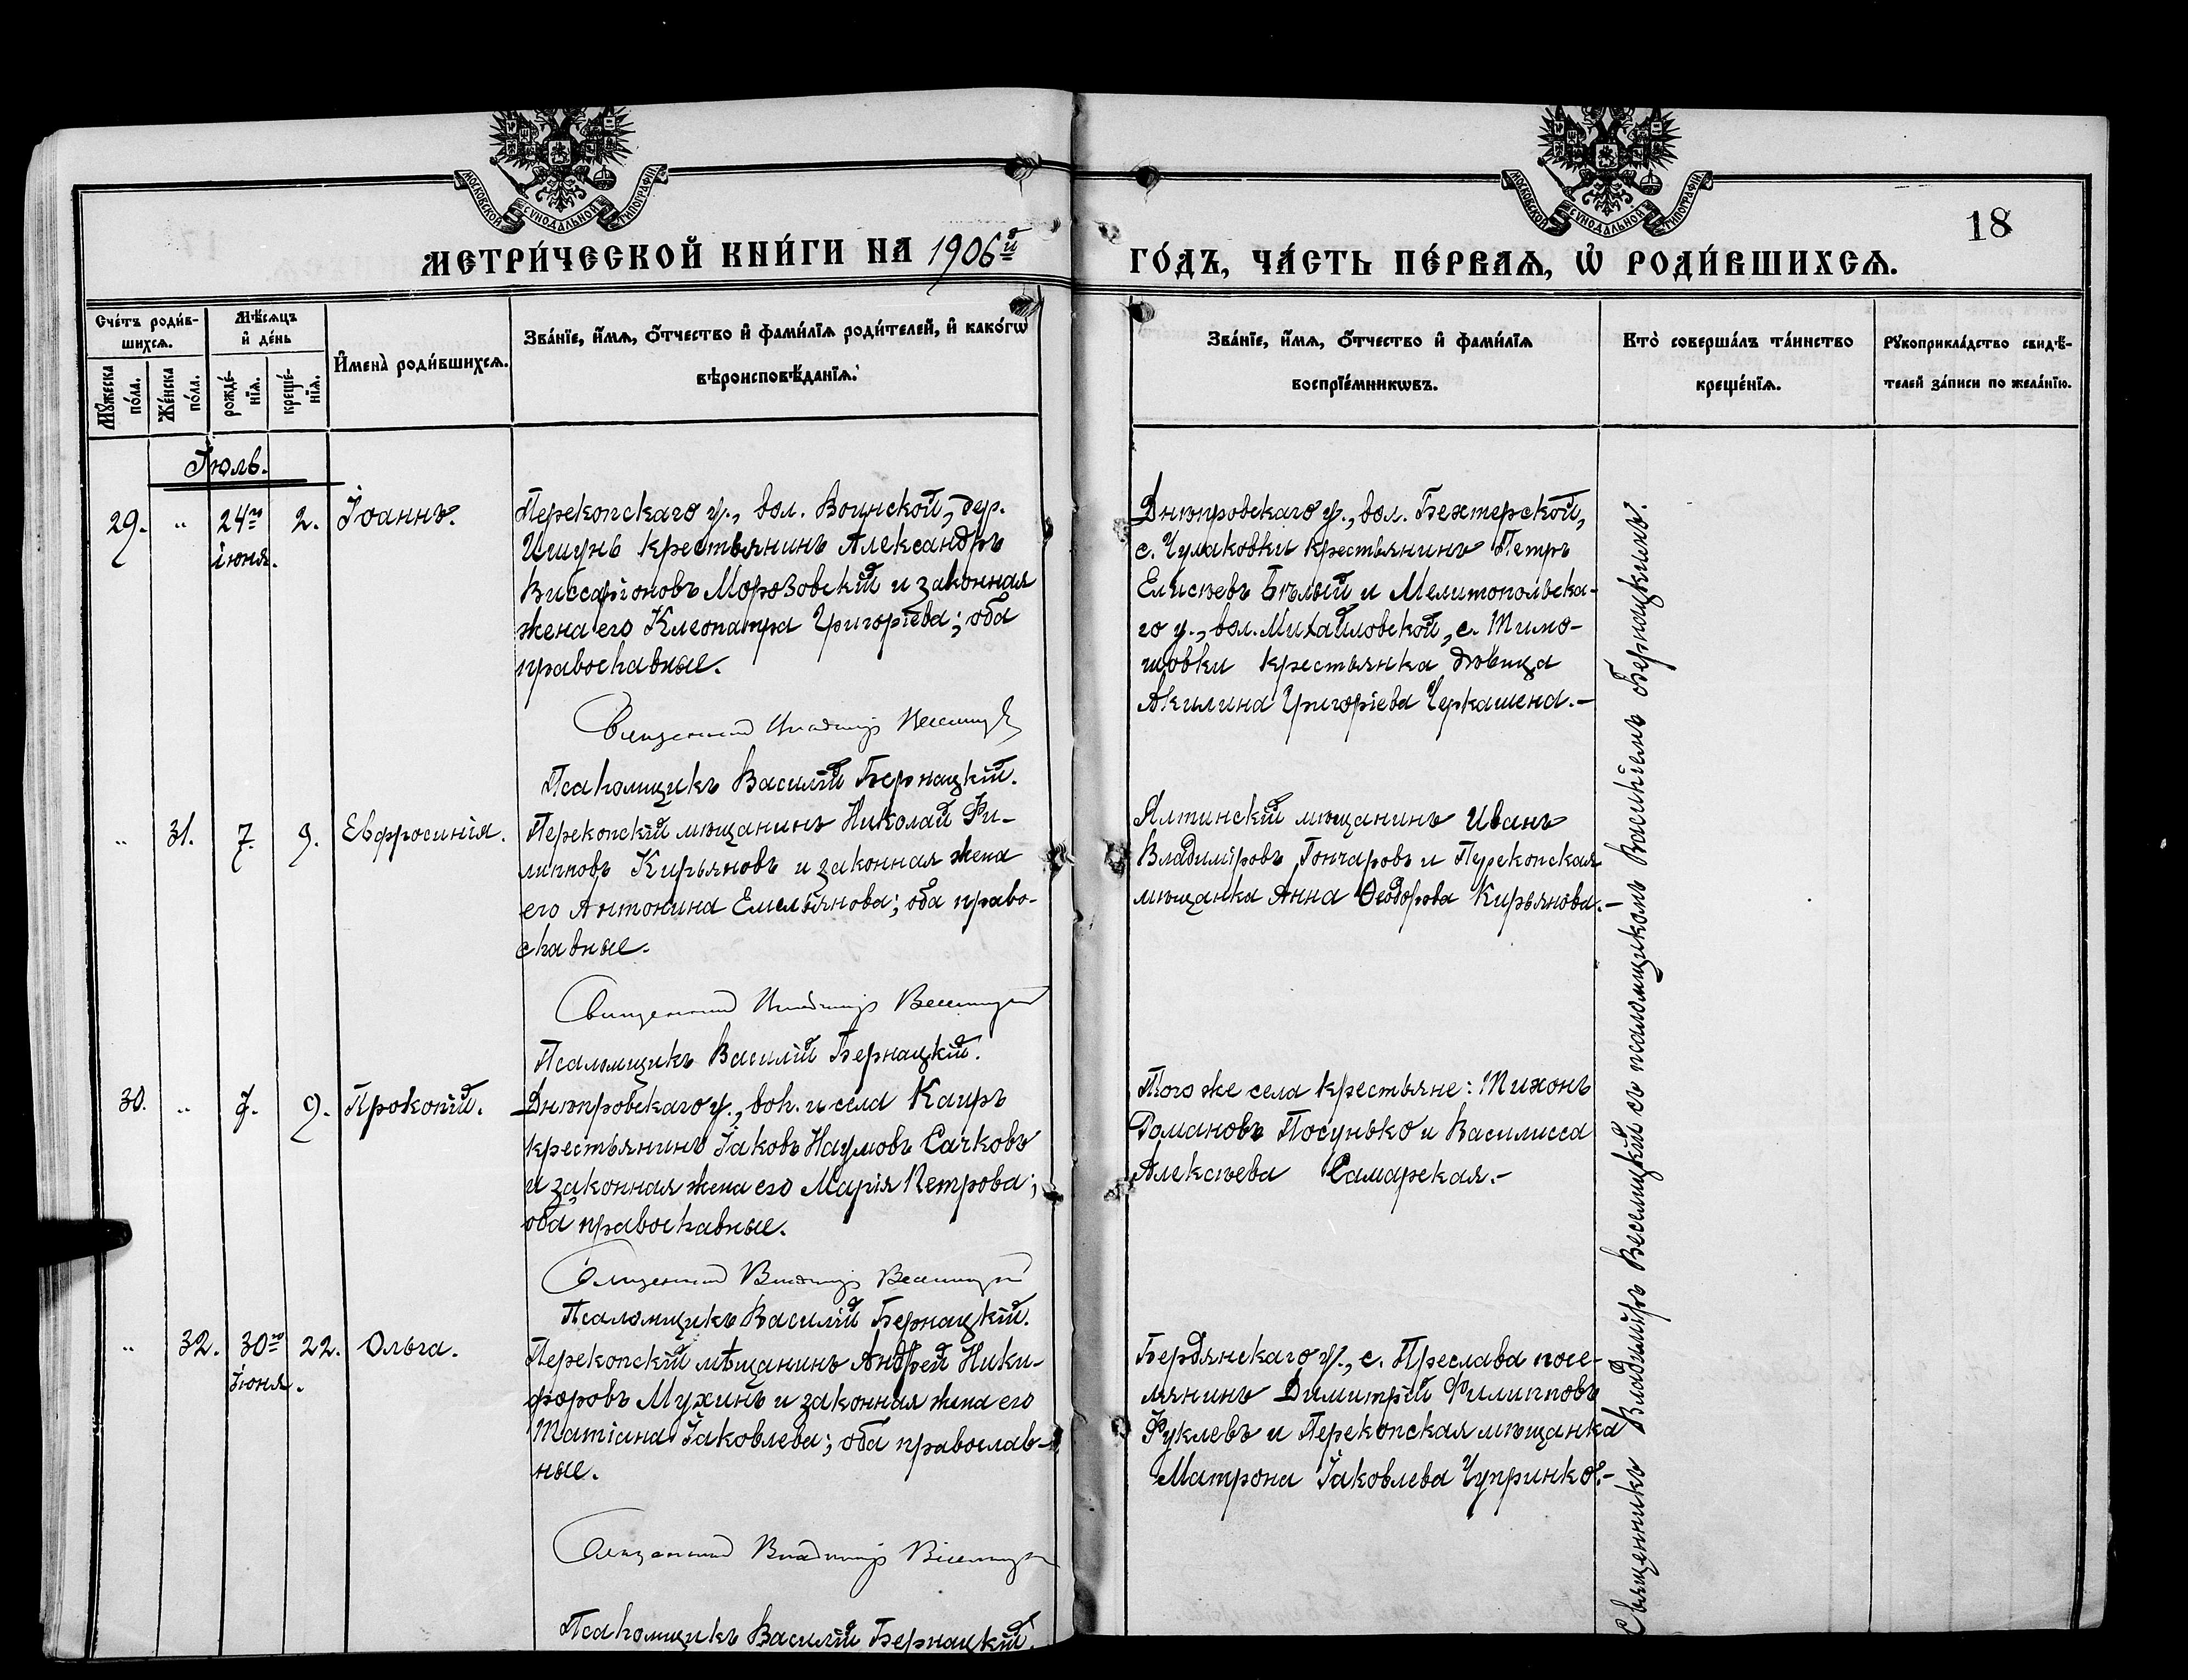 МОСКОВСКОЙ СѴНОДАЛЬНОЙ ТИПОГРАФІИ
МОСКОВСКОЙ СѴНОДАЛЬНОЙ ТИПОГРАФІИ
18
МЕТРИ́ЧЕСКОЙ КНИ́ГИ НА 1906й
ГО́ДЪ, ЧА́СТЬ ПЕ́РВАѦ, Ѡ҆ РОДИ́ВШИХСѦ.
Сче́тъ роди́в-
шихсѧ.
Мꙋ́жеска
по́ла.
Же́нска
по́ла.
Мѣ́сѧцъ
и҆ де́нь
рожде́-
нїѧ.
креще́-
нїѧ.
И҆мена̀ роди́вшихсѧ.
Зва́нїе, и҆́мѧ, ѻ҆́тчество и҆ фами́лїѧ роди́телей, и҆ како́гѡ
вѣроисповѣ́данїѧ.
Зва́нїе, и҆́мѧ, ѻ҆́тчество и҆ фами́лїѧ
воспрїе́мникѡвъ.
Кто̀ соверша́лъ та́инство
креще́нїѧ.
Рꙋкоприкла́дство свидѣ́-
телей за́писи по жела́нїю.
Іюль.
29. " 24го 2. Іоаннъ.
іюня.
Перекопскаго у., вол. Воинской, дер.
Ишунь крестьянинъ Александръ
Виссаріоновъ Морозовскій и законная
жена его Клеопатра Григоріева; оба
православные.
Священникъ Владиміръ Веселицкій
Псаломщикъ Василій Бернацкій.
Днѣпровскаго у., вол. Бехтерской,
с. Чулаковки крестьянинъ Петръ
Елисѣевъ Бѣлый и Мелитопольска-
го у., вол. Михайловской, с. Тимо-
шовки крестьянка дѣвица
Акилина Григоріева Черкашена.-
" 31. 7. 9. Евфросинія.
Перекопскій мѣщанинъ Николай Фи-
липповъ Кирьяновъ и законная жена
его Антонина Емельянова; оба право-
славные.
Священникъ Владиміръ Веселицкій
Псаломщикъ Василій Бернацкій.
Ялтинскій мѣщанинъ Иванъ
Владиміровъ Гончаровъ и Перекопская
мѣщанка Анна Ѳеодорова Кирьянова.-
30. " 7. 9. Прокопій.
Днѣпровскаго у., вол. и села Каиръ
крестьянинъ Іаковъ Наумовъ Сачковъ
и законная жена его Марія Петрова;
оба православные.
Священникъ Владиміръ Веселицкій
Псаломщикъ Василій Бернацкій.
Того же села крестьяне: Тихонъ
Романовъ Посунько и Василисса
Алексѣева Самарская.-
" 32. 30го 22. Ольга.
іюня.
Перекопскій мѣщанинъ Андрей Ники-
форовъ Мухинъ и законная жена его
Татіана Іаковлева; оба православ-
ные.
Священникъ Владиміръ Веселицкій
Псаломщикъ Василій Бернацкій.
Бердянскаго у., с. Преслава посе-
лянинъ Димитрій Филипповъ
Фуклевъ и Перекопская мѣщанка
Матрона Іаковлева Чупринко.-
Священникъ Владиміръ Веселицкій съ псаломщикомъ Василіемъ Бернацкимъ.